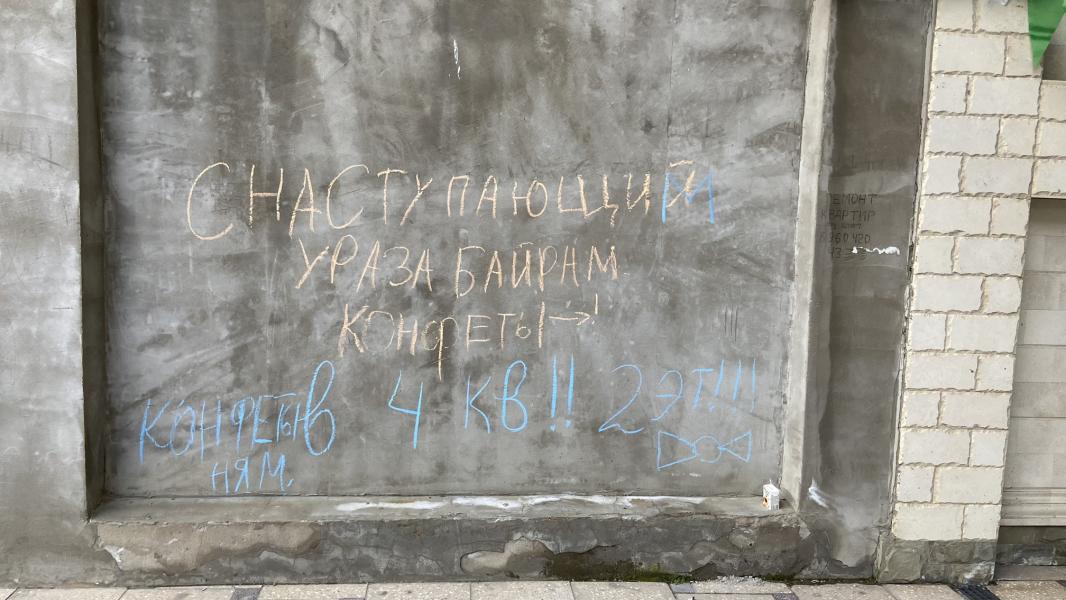 С НАСТУПАЮЩИМ
УРАЗА БАЙРАМ
КОНФЕТЫ→!
КОНФЕТЫ В 4 КВ!! 2 ЭТ!!!
НЯМ.
РЕМОНТ
КВАРТИР